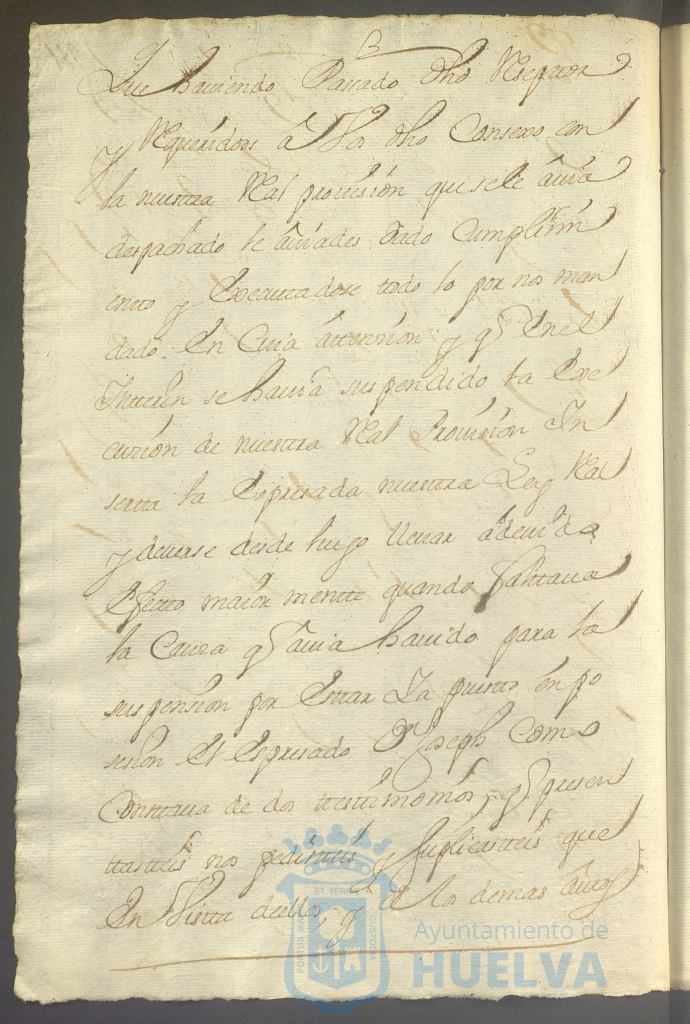 Que haviendo Passado dho Rezeptor
y Requeridoos a Vos dho Consexo con
la nuestra Real provision que se le avia
despachado le aviades dado Cumplim
ento y Executadose todo lo por nos man
dado. En Cuia attension y qe En el
Interin se havia suspendido la Exe
cution de nuestra Real Provision In
serta la Espresada nuestra Ley Real
y deverse desde luego llevar a devido
Efecto maior mentte quando faltava
la Causa qe avia havido para la
suspension por Estar Ya puesto en po
sesion El Espresado Dn Joseph Como
Constava de dos ttestimonios, qe presen
ttasteis nos pedisteis y suplicastteis que
En Vistta de ellos, y de los demas autos
Ayuntamiento de
HUELVA
PORTUS MARIS ET TERRE CUSTODIA